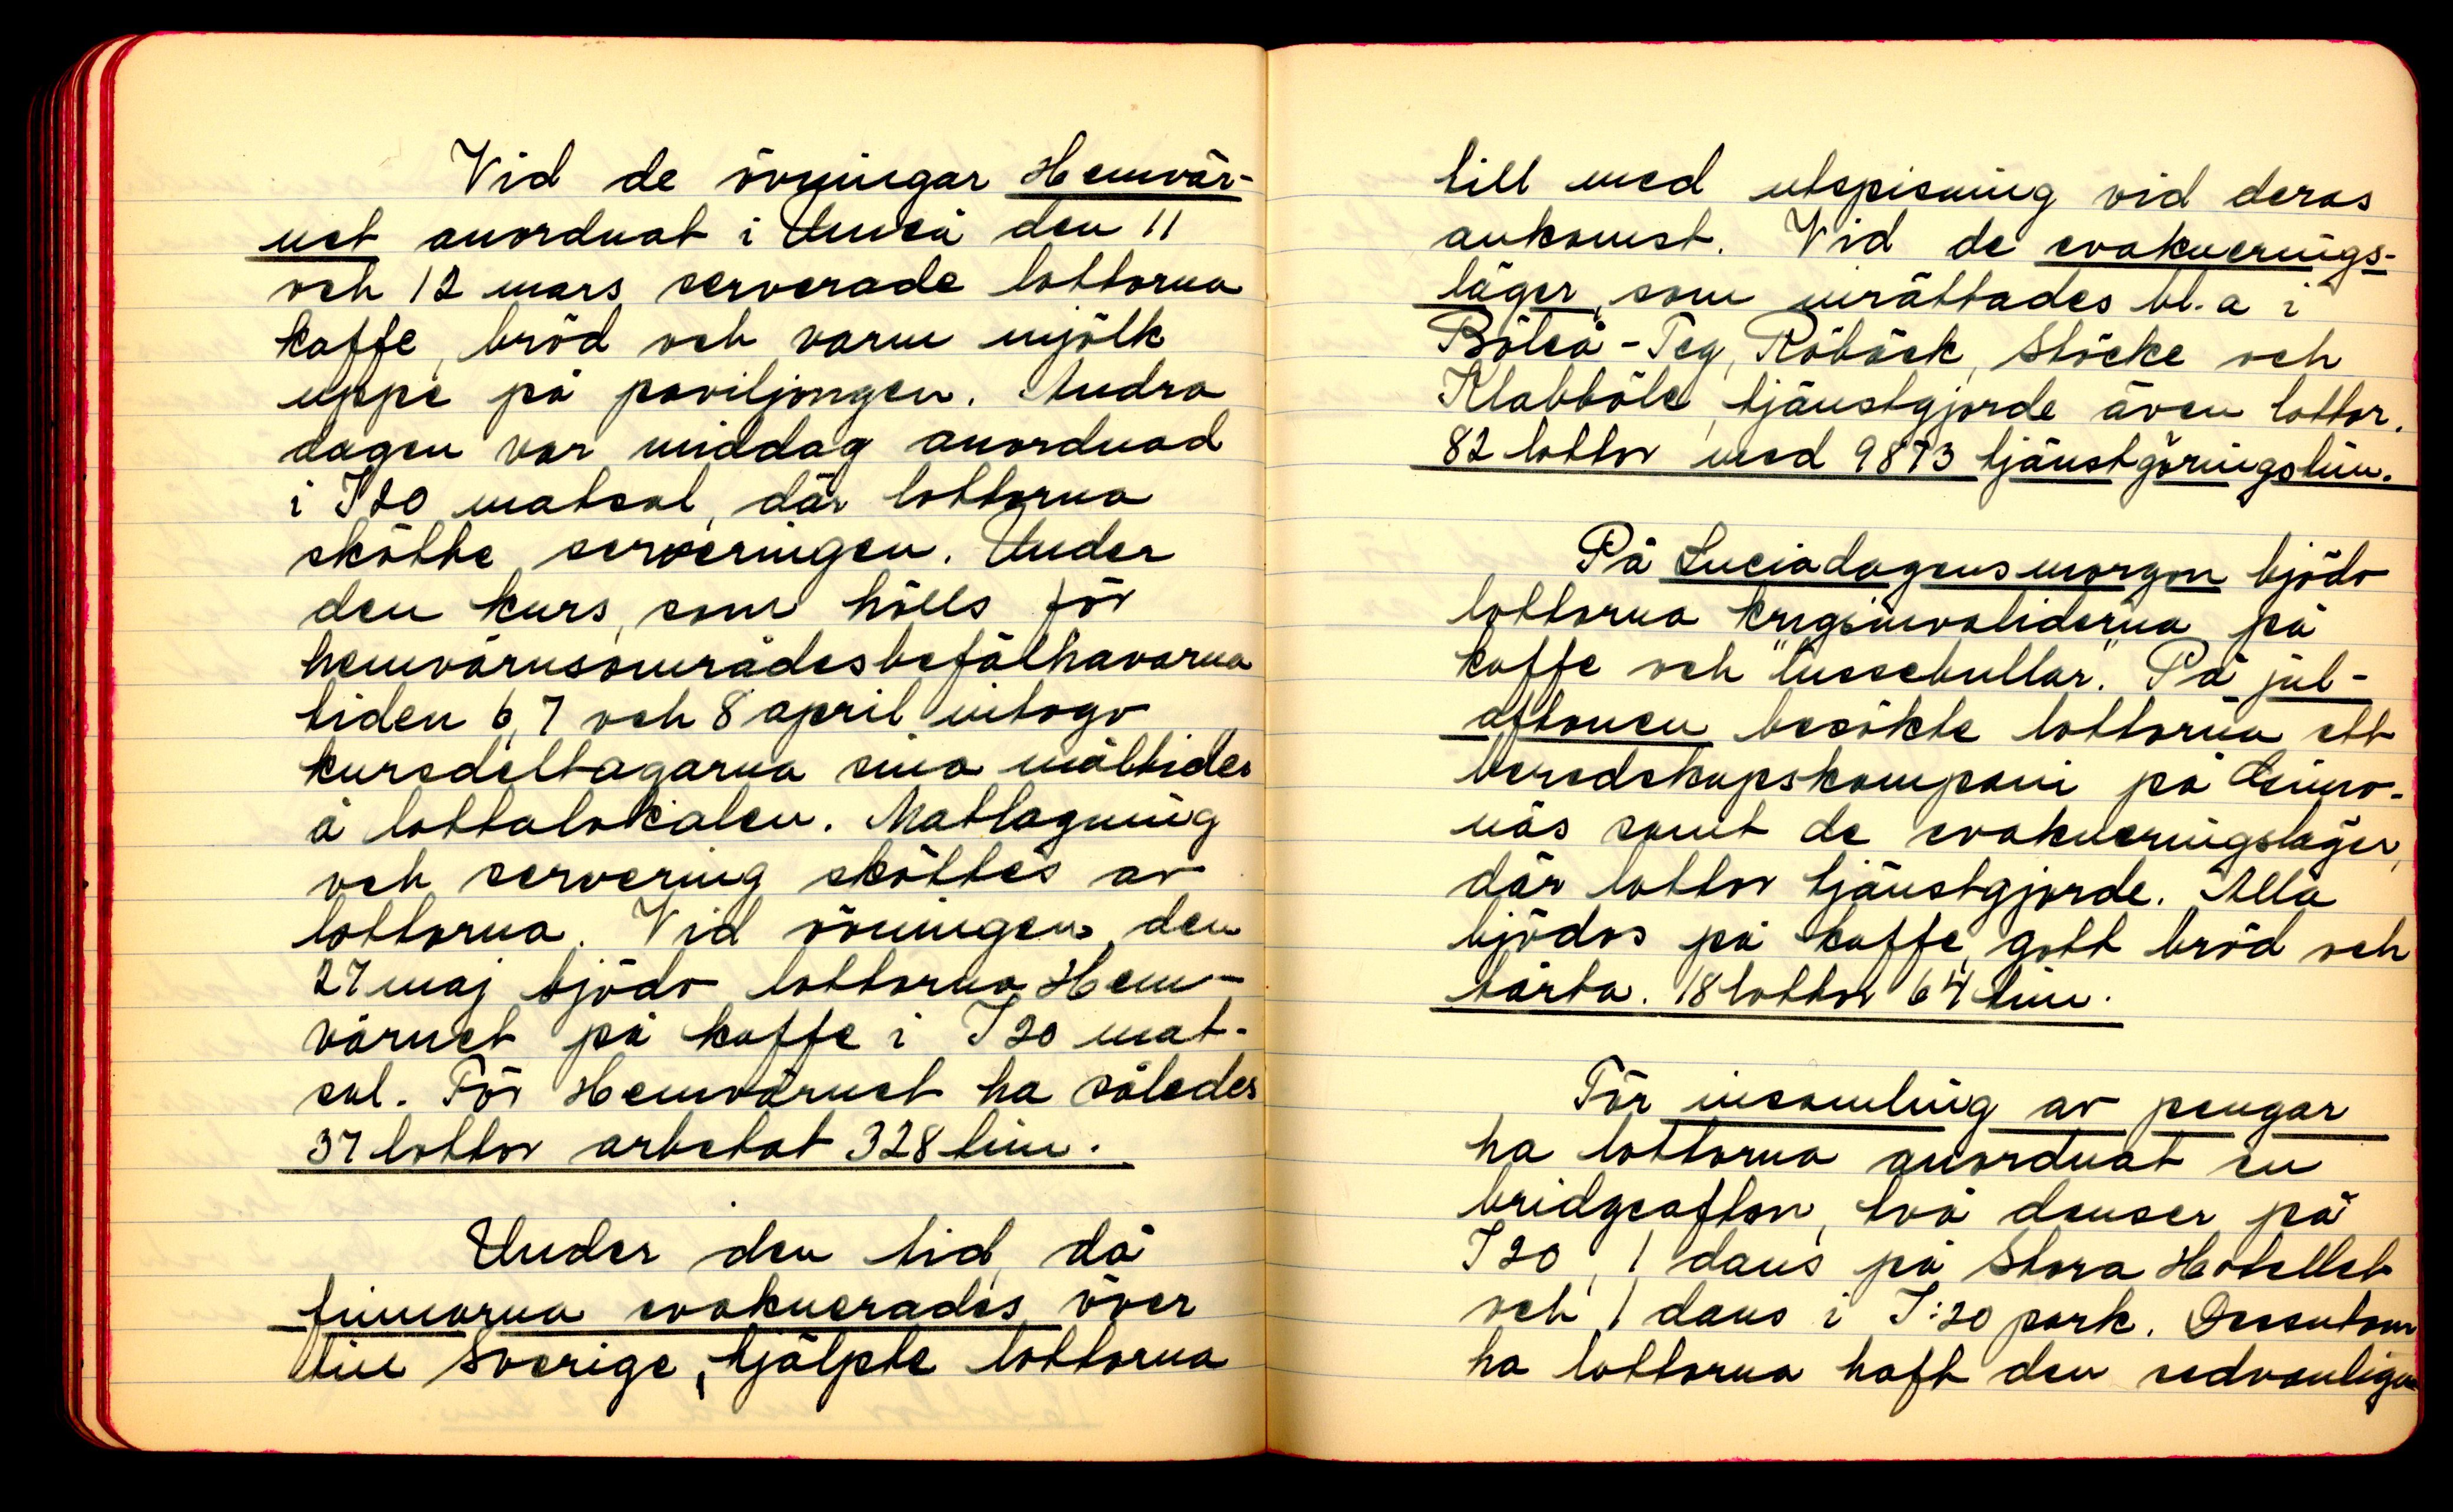 Vid de övningar Hemvär-
net anordnat i Umeå den 11
och 12 mars serverade lottorna
kaffe, bröd och varm mjölk
uppe på paviljongen. Andra
dagen var middag anordnad
i I20 matsal, där lottorna
skötte serveringen. Under
den kurs, som hölls för
hemvärnsområdesbefälhavarna
tiden 6, 7 och 8 april intogo
kursdeltagarna sina måltider
å lottalokalen. Matlagning
och servering sköttes av
lottorna. Vid övningen den
27 maj bjödo lottorna Hem-
värnet på kaffe i I20 mat-
sal. För Hemvärnet ha således
37 lottor arbetat 328 tim.
Under den tid, då
finnarna evakuerades över
till Sverige, hjälpte lottorna
till med utspisning vid deras
ankomst. Vid de evakuerings-
läger, som inrättades bl.a i
Böleå-Teg, Röbäck, Stöcke och
Klabböle, tjänstgjorde även lottor.
82 lottor med 9873 tjänstgöringstim.
På Luciadagensmorgon bjödo
lottorna krigsinvaliderna på
kaffe och "lussebullar". På jul-
aftonen besökte lottorna ett
beredskapskompani på Gimo-
näs samt de evakueringsläger,
där lottor tjänstgjorde. Alla
bjödos på kaffe, gott bröd och
tårta. 18 lottor 64 tim.
För insamling av pengar
ha lottorna anordnat en
bridgeafton, två danser på
I20, 1 dans på Stora Hotellet
och 1 dans i I:20 park. Dessutom
ha lottorna haft den sedvanliga